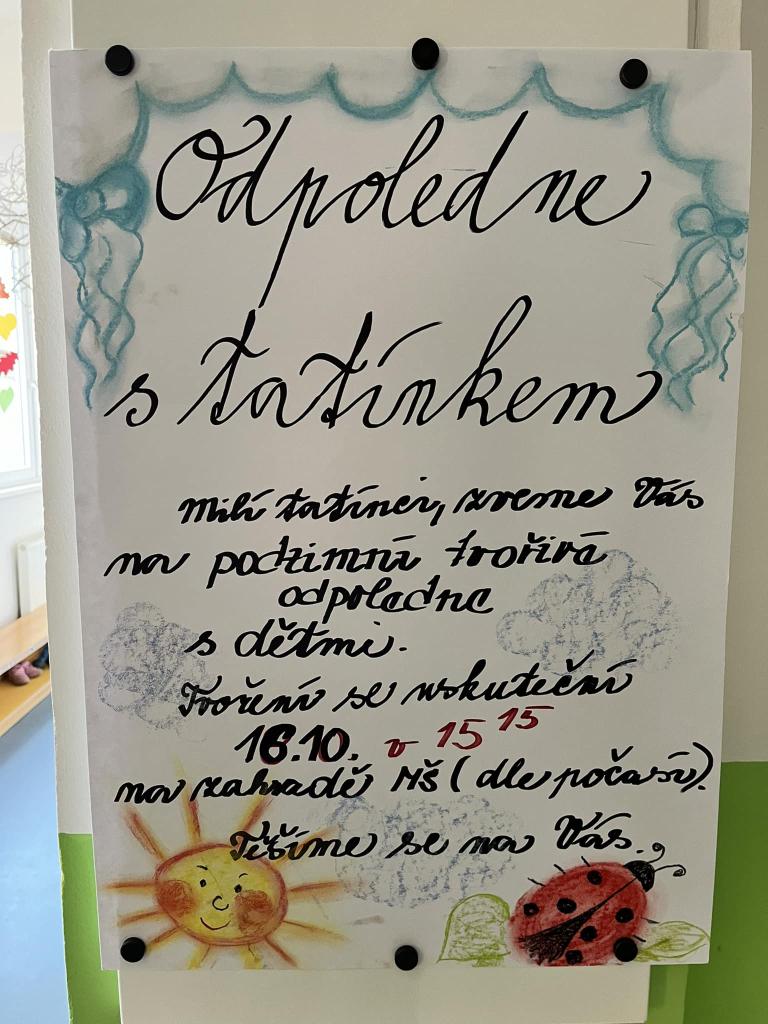 Odpoledne
s tatínkem
Milí tatínci, zveme Vás
na podzimní tvořivé
odpoledne
s dětmi.
Tvoření se uskuteční
16.10. v 15 15
na zahradě MŠ (dle počasí).
Těšíme se na Vás.